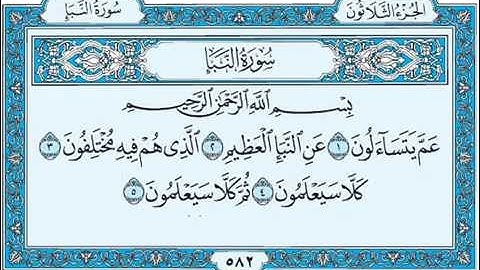 الجزء الثلاثون
سورة النبأ
سُورَةُ النَّبَإِ
بِسْمِ اللَّهِ الرَّحْمَٰنِ الرَّحِيمِ
عَمَّ يَتَسَاءَلُونَ ١ عَنِ النَّبَإِ الْعَظِيمِ ٢ الَّذِي هُمْ فِيهِ مُخْتَلِفُونَ ٣
كَلَّا سَيَعْلَمُونَ ٤ ثُمَّ كَلَّا سَيَعْلَمُونَ ٥
٥٨٢